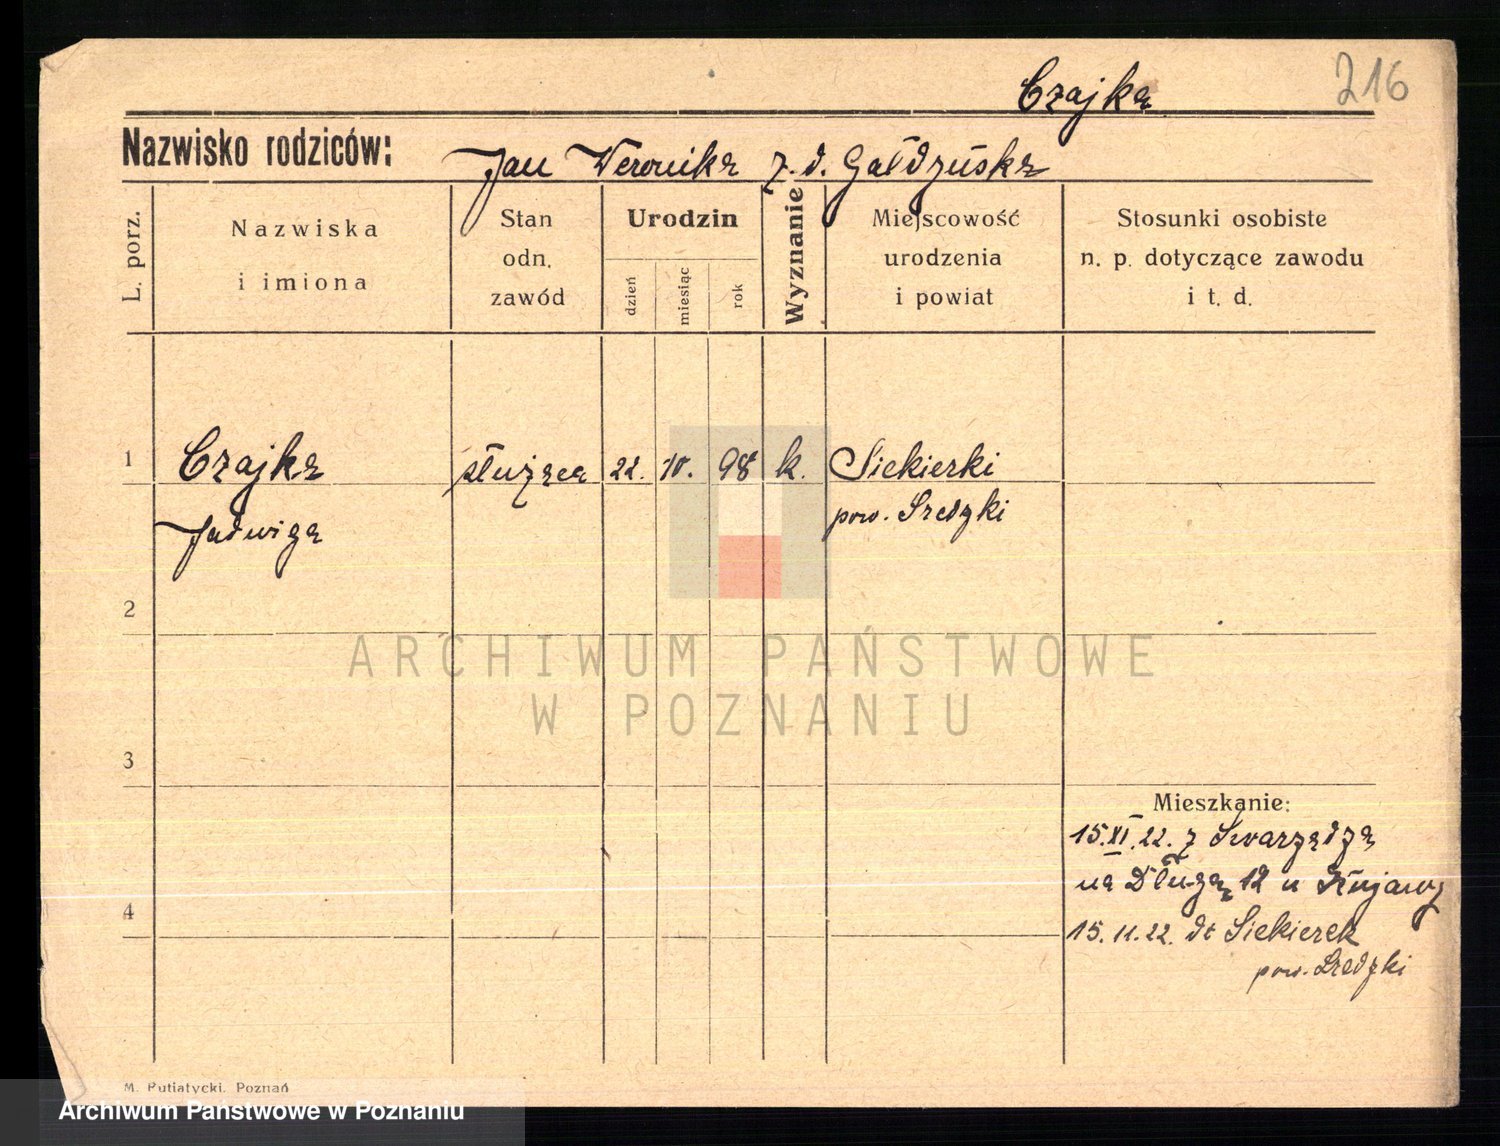 216
Czajka
Nazwisko rodziców: Jan Weronika z. d. Gałdzuska
L. porz.
Nazwiska
i imiona
Stan
odn.
zawód
Urodzin
dzień
miesiąc
rok
Wyznanie
Miejscowość
urodzenia
i powiat
Stosunki osobiste
n. p. dotyczące zawodu
i t. d.
1 Czajka służąca 22. 10. 98 k. Siekierki
Jadwiga pow. Średzki
2
ARCHIWUM PAŃSTWOWE
W POZNANIU
3
Mieszkanie:
15.XI.22. z Swarzędza
4 na Długą 12 u
15.11.22. dt Siekierek
pow. Średzki
M. Putiatycki, Poznań
Archiwum Państwowe w Poznaniu